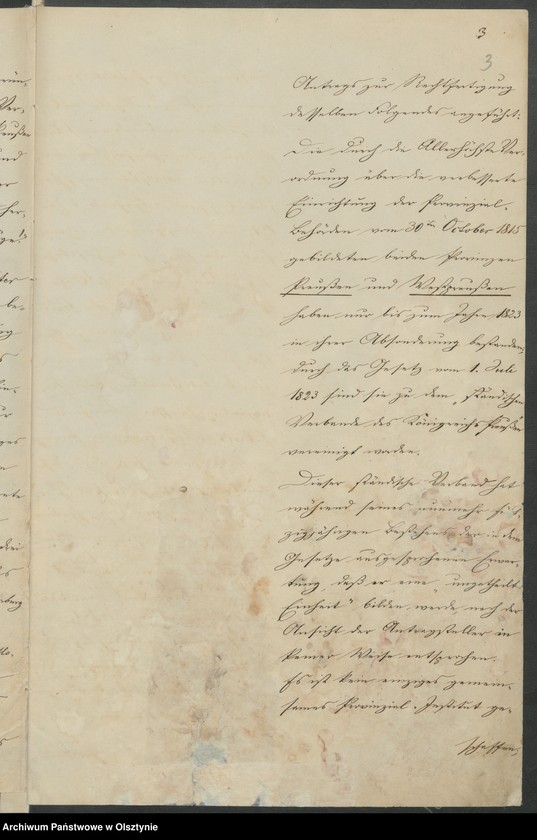 3
3
Antrags zur Rechtfertigung
desselben Folgendes angeführt:
Die durch die Allerhöchste Ver-
ordnung über die verbesserte
Einrichtung der Provinzial-
Behörden vom 30ten October 1815
gebildeten beiden Provinzen
Preußen und Westpreußen
haben nur bis zum Jahre 1823
in ihrer Absonderung bestanden,
durch das Gesetz vom 1. Juli
1823 sind sie zu dem „ständischen
Verbande des Königreichs Preußen"
vereinigt worden.
Dieser ständische Verband hat
während seines nunmehr fünf-
zigjährigen Bestehens der in dem
Gesetze ausgesprochenen Erwar-
tung, daß er eine „ungetheilte
Einheit" bilden werde, nach der
Ansicht der Antragsteller in
keiner Weise entsprochen.
Es ist kein einziges gemein-
sames Provinzial-Institut ge-
schaffen,
Archiwum Państwowe w Olsztynie